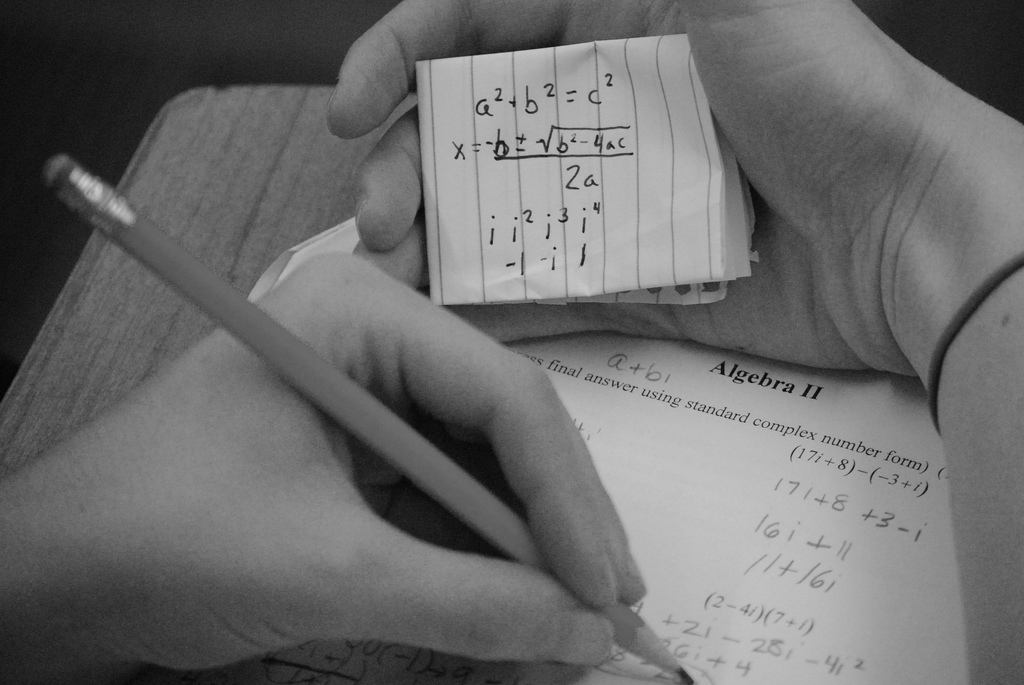 a² + b² = c²
x = -b ± √b² - 4ac
2a
i i² i³ i⁴
-1 -i 1
Algebra II
a+bi
final answer using standard complex number form)
(17i+8)-(-3+i)
17i+8 +3-i
16i + 11
11+16i
(2-4i)(7+i)
+2i - 28i - 4i²
26i + 4